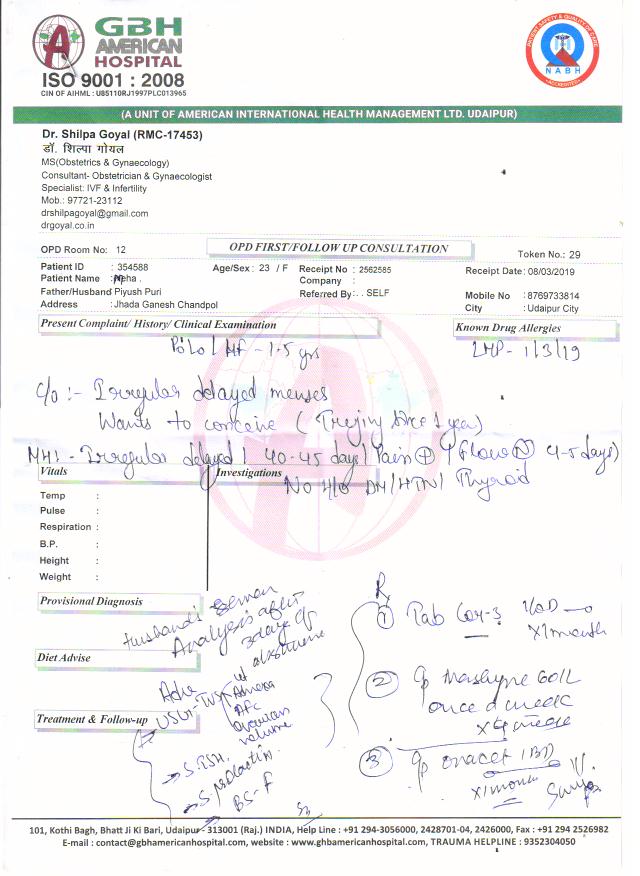 GBH
AMERICAN
HOSPITAL
ISO 9001 : 2008
CIN OF AIHML : U85110RJ1997PLC013965
PATIENT SAFETY & QUALITY OF CARE
NABH
ACCREDITED
(A UNIT OF AMERICAN INTERNATIONAL HEALTH MANAGEMENT LTD. UDAIPUR)
Dr. Shilpa Goyal (RMC-17453)
डॉ. शिल्पा गोयल
MS(Obstetrics & Gynaecology)
Consultant- Obstetrician & Gynaecologist
Specialist: IVF & Infertility
Mob.: 97721-23112
drshilpagoyal@gmail.com
drgoyal.co.in
OPD Room No: 12
OPD FIRST/FOLLOW UP CONSULTATION
Token No.: 29
Patient ID : 354588 Age/Sex : 23 / F Receipt No : 2562585 Receipt Date: 08/03/2019
Patient Name : Neha . Company :
Father/Husband Piyush Puri Referred By: . . SELF Mobile No : 8769733814
Address : Jhada Ganesh Chandpol City : Udaipur City
Present Complaint/ History/ Clinical Examination
Known Drug Allergies
P0L0 / MF - 1.5 yrs
LMP - 1/3/19
c/o :- Irregular delayed menses
Wants to conceive ( Trying since 1 year)
MH:- Irregular delayed / 40-45 days / Pain ⊕ / Flow Ⓝ 4-5 days)
Vitals
Investigations
No H/o DM / HTN / Thyroid
Temp :
Pulse :
Respiration :
B.P. :
Height :
Weight :
Provisional Diagnosis
Husband's Semen
Analysis after
3 days of
abstinence
Diet Advise
Adv
USG - TVS
AFC
ovarian
volume
Treatment & Follow-up
S. TSH
S. prolactin
BS-F
Rx
① Tab
x 1 month
②
once a week
x 4 weeks
③ 1 BD
x 1 month
101, Kothi Bagh, Bhatt Ji Ki Bari, Udaipur - 313001 (Raj.) INDIA, Help Line : +91 294-3056000, 2428701-04, 2426000, Fax : +91 294 2526982
E-mail : contact@gbhamericanhospital.com, website : www.gbhamericanhospital.com, TRAUMA HELPLINE : 9352304050